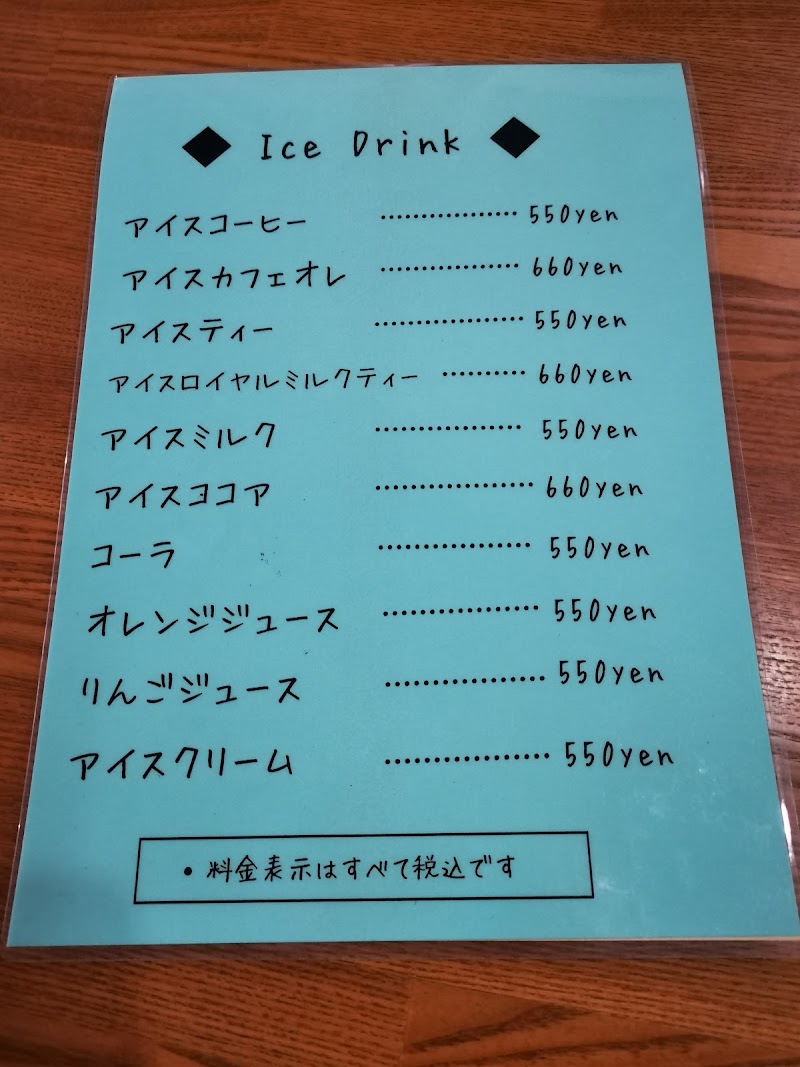 ◆ Ice Drink ◆
アイスコーヒー ················· 550yen
アイスカフェオレ ················· 660yen
アイスティー ·················· 550yen
アイスロイヤルミルクティー ·········· 660yen
アイスミルク ·················· 550yen
アイスココア ·················· 660yen
コーラ ·················· 550yen
オレンジジュース ·················· 550yen
りんごジュース ·················· 550yen
アイスクリーム ·················· 550yen
・料金表示はすべて税込です